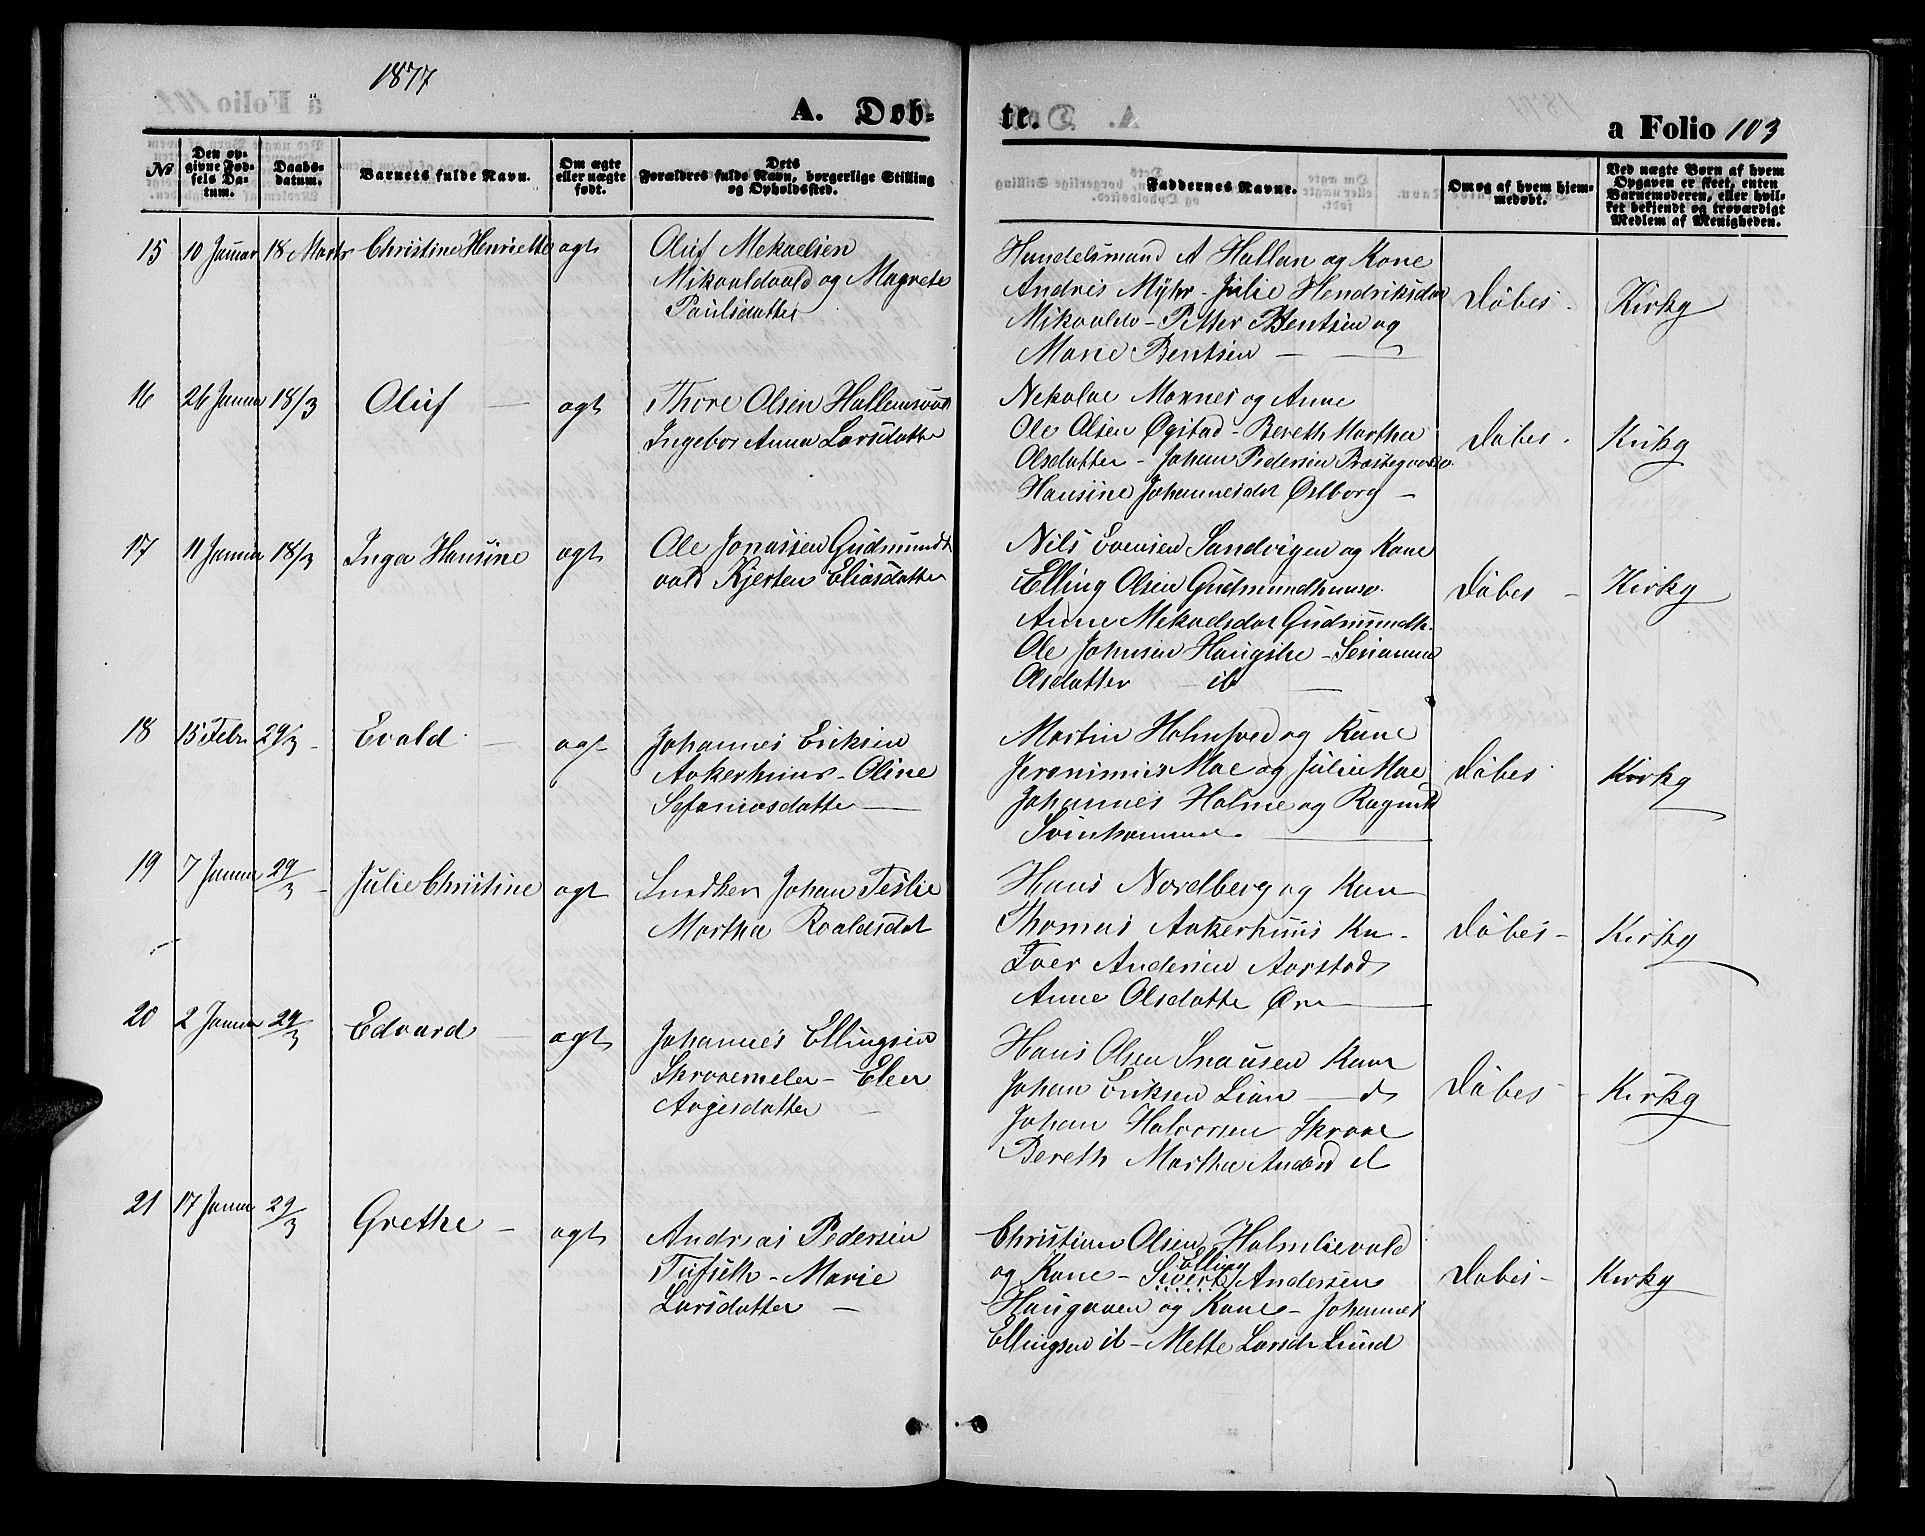 1877
A. Døb-
te.
a Folio 103
№
Den op-
givne Fød-
sels Da-
tum.
Daabs-
datum.
Barnets fulde Navn.
Om ægte
eller uægte
født.
Dets
Forældres fulde Navn, borgerlige Stilling
og Opholdssted.
Faddernes Navne.
Om og af hvem hjem-
medøbt.
Ved uægte Børn af hvem
Opgaven er skeet, enten
Barnemoderen, eller hvil-
ket bekjendt og troværdigt
Medlem af Menigheden.
15 10 Januar 18 Marts Christine Henriette ægt
Oluf Mekaelsen
Mikvoldvald og Magrete
Paulsdatter
Handelsmand A Hallan og Kone
Andreis Myhr - Julie Hendriksdat
Mikvoldv - Petter Bentsen og
Marie Bentsen
Døbes Kirkg
16 26 Januar 18/3 Oluf ægt
Thore Olsen Hallemsvald
Ingebor Anna Larsdatter
Nekolae Moxnes og Anne
Ole Olsen Øgstad - Bereth Martha
Olsdatter - Johan Pedersen Præstegaard
Hansine Johannesdat Østborg
Døbes Kirkg
17 11 Januar 18/3 Inga Hansine ægt
Ole Jonassen Gudmundt
vald Kjersten Eliasdatter
Nils Evensen Sandvigen og Kone
Elling Olsen Gudmundhaus
Anne Mekaelsdat Gudmundh.
Ole Johnsen Haugske - Serianna
Olsdatter ib
Døbes Kirkg
18 15 Febr 29/3 Evald ægt
Johannes Eriksen
Aakerhuus - Oline
Sefaniasdatter
Martin Holmsved og Kone
Jeronimus Moe og Julie Moe
Johannes Holme og Ragnild
Svinhammer
Døbes Kirkg
19 7 Januar 29/3 Julie Christine ægt
Snedker Johan Teslie
Martha Roaldsdat
Hans Nordberg og Kone
Thomas Aakerhuus Ko
Iver Andersen Aarstad
Anne Olsdatte Øra
Døbes Kirkg
20 2 Januar 29/3 Edvard ægt
Johannes Ellingsen
Skroaemelen - Elen
Aagesdatter
Hans Olsen Snausen Kone
Johan Eriksen Lian ds
Johan Halvorsen Skroae
Bereth Martha Andersd
Døbes Kirkg
21 17 Januar 29/3 Grethe ægt
Andreas Pedersen
Tufseth - Marie
Larsdatter
Christian Olsen Holmlievald
og Kone - Sivert Andersen
Elling
Haugaaen og Kone - Johannes
Ellingsen ib - Mette Larsdr Lund
Døbes Kirkg